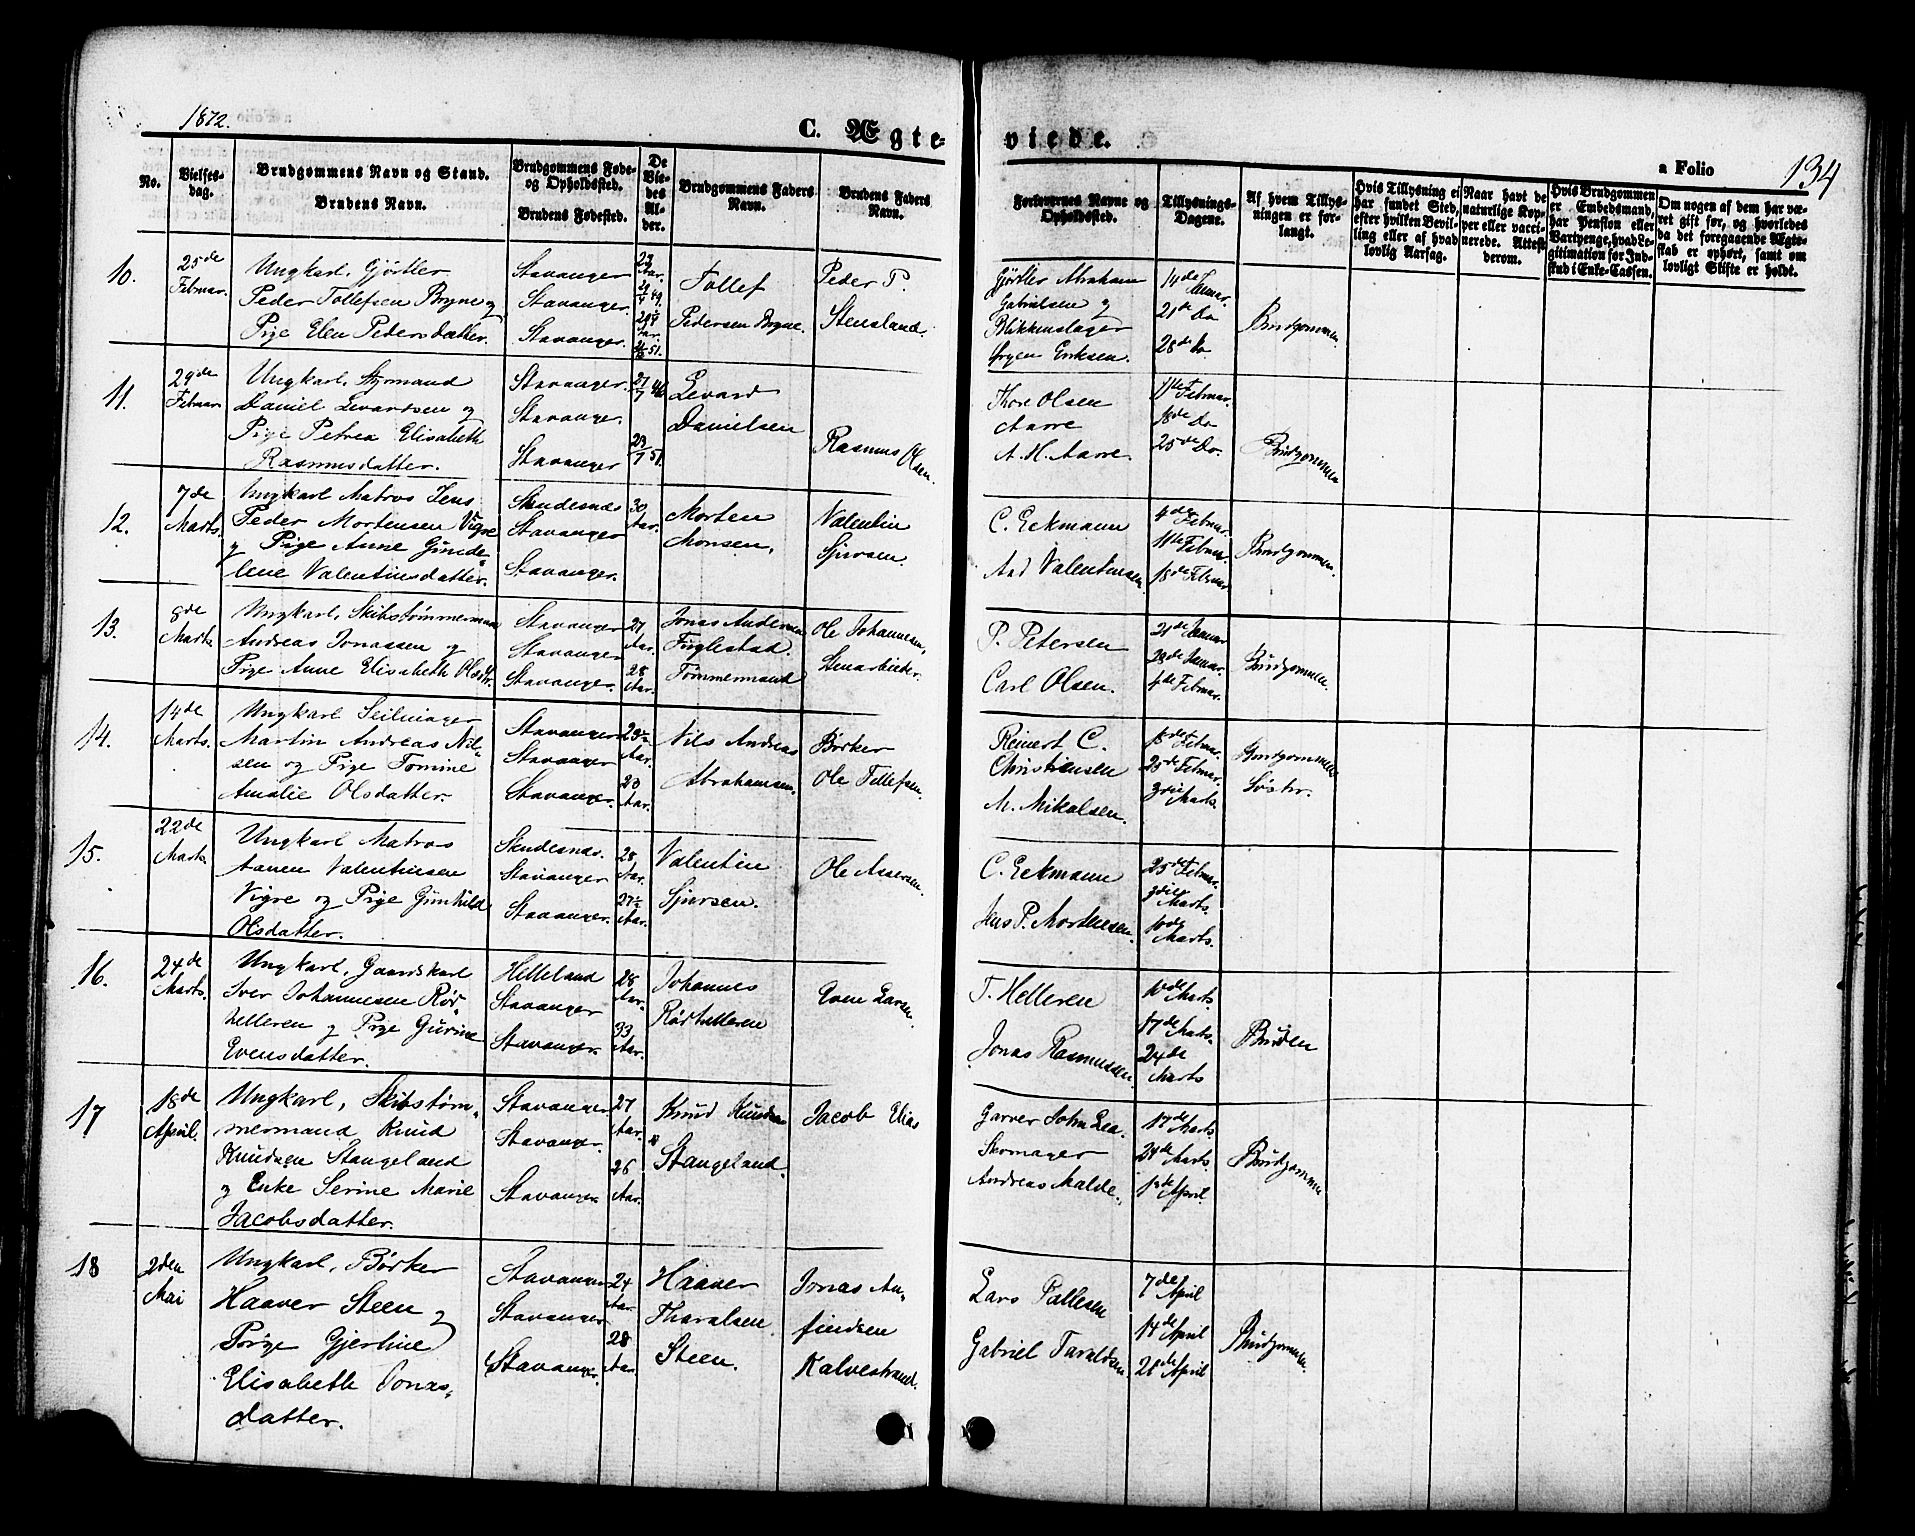 1872.
C. Ægte-
viede.
a Folio
134
No.
Vielses-
dag.
Brudgommens Navn og Stand.
Brudens Navn.
Brudgommens Føde-
og Opholdssted.
Brudens Fødested.
De
Vie-
des
Al-
der.
Brudgommens Faders
Navn.
Brudens Faders
Navn.
Forloverens Navne og
Opholdssted.
Tillysnings-
Dagene.
Af hvem Tillys-
ningen er for-
langt.
Hvis Tillysning ei
har fundet Sted,
efter hvilken Bevil-
ling eller af hvad
lovlig Aarsag.
Naar havt de
naturlige Kop-
per eller vacci-
nerede. Attest
derom.
Hvis Brudgommen
er Embedsmand,
har Pension eller
Vartpenge, hvad Le-
gitimation for Ind-
skud i Enke-Cassen.
Om nogen af dem har væ-
ret gift før, og hvorledes
da det foregaaende Ægte-
skab er ophørt, samt om
lovligt Skifte er holdt.
10.
25de
Februar.
Ungkarl, Gjørtler
Peder Tollefsen Bryne og
Pige Elen Pedersdatter.
Stavanger
Stavanger.
Stavanger.
Tollef
Pedersen Bryne
Peder P.
Stensland.
Gjørtler Abraham
Gabrielsen og
Blikkenslager
Ørgen Eriksen.
14de Januar.
21de Do
28de Do
Brudgommen
11.
29de
Februar
Ungkarl, Styrmand
Daniel Levardsen og
Pige Petrea Elisabeth
Rasmusdatter.
Stavanger.
Stavanger.
Stavanger
27/7 46
23/7 51.
Levard
Danielsen
Rasmus Olsen.
Thore Olsen
Aarre
A. H. Aarre.
11te Februar.
18de Do
25de Do.
Brudgommen
12.
7de
Marts.
Ungkarl Matros Jens
Peder Mortensen Vigre
og Pige Anne Gunde-
lene Valentinsdatter.
Skudesnæs
Stavanger
Stavanger.
30
Aar.
Morten
Monsen.
Valentin
Sjursen.
C. Eckmann
Aad Valentinsen
4de Februar.
11te Februar.
18de Februar
Brudgommen.
13.
8de
Marts
Ungkarl, Skibstømmermand
Andreas Jonassen og
Pige Anne Elisabeth Olsdtr.
Stavanger
Stavanger
Stavanger.
27
Aar.
28
Aar.
Jonas Andersen
Fuglestad.
Tømmermand
Ole Johannesen,
Stenarbeider.
P. Petersen
Carl Olsen.
21de Januar
28de Januar.
4de Februar.
Brudgommen.
14.
14de
Marts.
Ungkarl Seilmager
Martin Andreas Nil-
sen og Pige Tomine
Amalie Olsdatter.
Stavanger
Stavanger
Stavanger.
23½
Aar.
23
Aar.
Nils Andreas
Abrahamsen.
Bødker
Ole Tollefsen.
Reinert C.
Christiensen
M. Mikalsen.
18de Februar.
25de Februar.
3die Marts.
Brudgommens
Søster.
15.
22de
Marts
Ungkarl Matros
Aanen Valentinsen
Vigre og Pige Gunhild
Olsdatter.
Skudesnæs.
Stavanger
Stavanger.
28
Aar.
27½
Aar.
Valentin
Sjursen.
Ole Assersen.
C. Eckmann
Jens P. Mortensen.
25de Februar.
3die
Marts.
10de
Marts.
16.
24de
Marts.
Ungkarl, Gaardskarl
Iver Johannesen Rød-
helleren og Pige Gurine
Evensdatter.
Helleland
Stavanger
Stavanger.
28
Aar.
33
Aar.
Johannes
Rødhelleren
Even Larsen.
T. Helleren
Jonas Rasmussen.
10de Marts.
17de Marts.
24de
Marts
Bruden
17
18de
April.
Ungkarl, Skibstøm-
mermand Knud
Knudsen Stangeland
og Enke Serine Marie
Jacobsdatter.
Stavanger
Stavanger.
Stavanger.
27
Aar.
26
Aar.
Knud Knudsen
Stangeland.
Jacob Elias
Garver John Lea.
Skomager
Andreas Malde.
17de Marts.
24de Marts.
1ste April.
Brudgommen
18
2den
Mai
Ungkarl, Bødker
Haaver Steen og
Pige Gjertine
Elisabeth Jonas-
datter.
Stavanger
Stavanger.
Stavanger.
24
Aar.
28
Aar.
Haaver
Tharalsen
Steen.
Jonas An-
findsen
Kalvestrand.
Lars Pallesen
Gabriel Taraldsen.
7de April
14de April
28de April
Brudgommen.